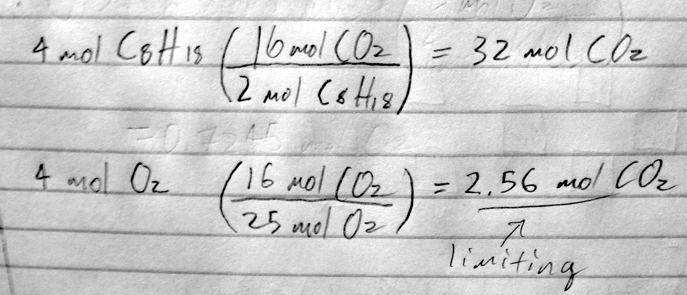 4 mol C8H18 (16 mol CO2 / 2 mol C8H18) = 32 mol CO2
4 mol O2 (16 mol CO2 / 25 mol O2) = 2.56 mol CO2
↑
limiting